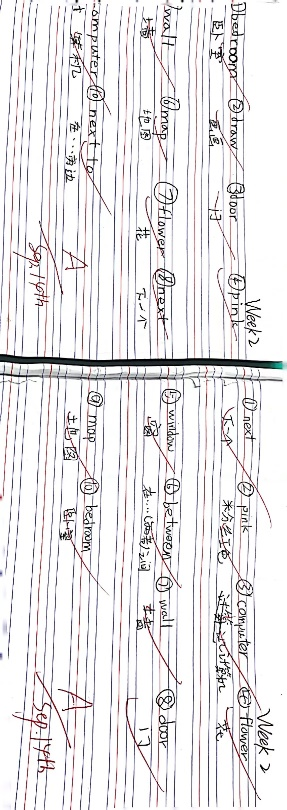 Week 2
①bedroom ②draw ③door ④pink
卧室 画画 门
wall ⑥map ⑦flower ⑧next
墙 地图 花 下一个
computer ⑩next to
算机 在…旁边
A
Sep.14th
Week 2
①next ②pink ③computer ④flower
下一个 粉红色 计算机 花
⑤window ⑥between ⑦wall ⑧door
窗 在…两者之间 墙 门
⑨map ⑩bedroom
地图 卧室
A
Sep.14th